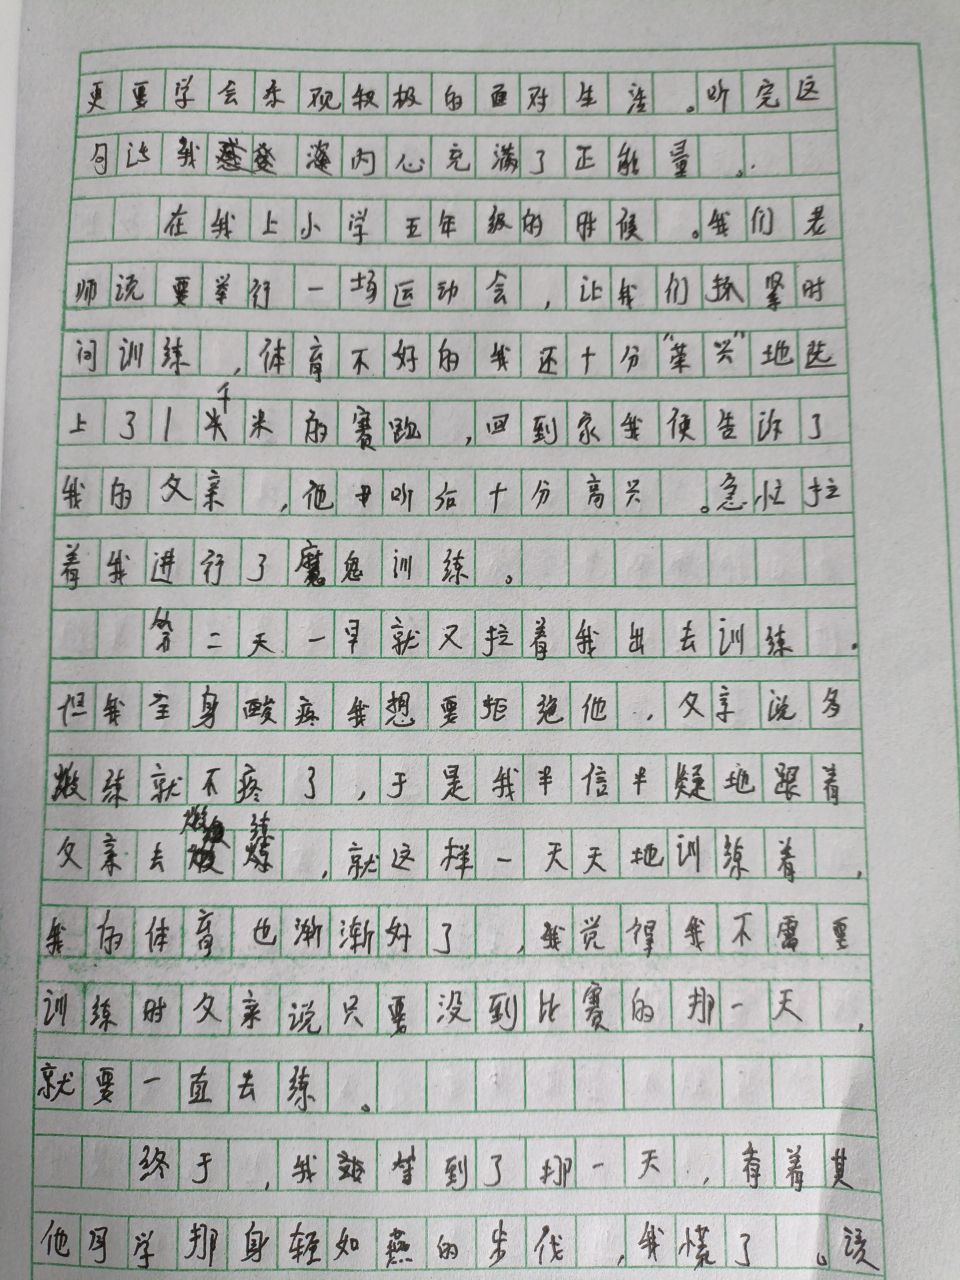 更要学会乐观积极的面对生活。听完这
句话我内心充满了正能量。
在我上小学五年级的时候。我们老
师说要举行一场运动会,让我们抓紧时
间训练,体育不好的我还十分“荣兴”地选
上了1千米的赛跑,回到家我便告诉了
我的父亲,他听后十分高兴。急忙拉
着我进行了魔鬼训练。
第二天一早就又拉着我出去训练.
但我全身酸疼我想要拒绝他,父亲说多
煅练就不疼了,于是我半信半疑地跟着
父亲去煅练,就这样一天天地训练着,
我的体育也渐渐好了,我觉得我不需要
训练时父亲说只要没到比赛的那一天,
就要一直去练。
终于,我等到了那一天,看着其
他同学那身轻如燕的步伐,我慌了。该